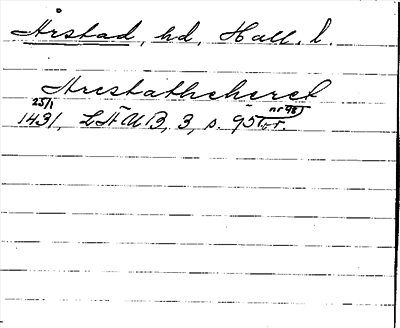 Årstad, hd, Hall. l.
Arestatheheret
25/1 nr 98)
1431, LÄUB, 3, s. 95 or.